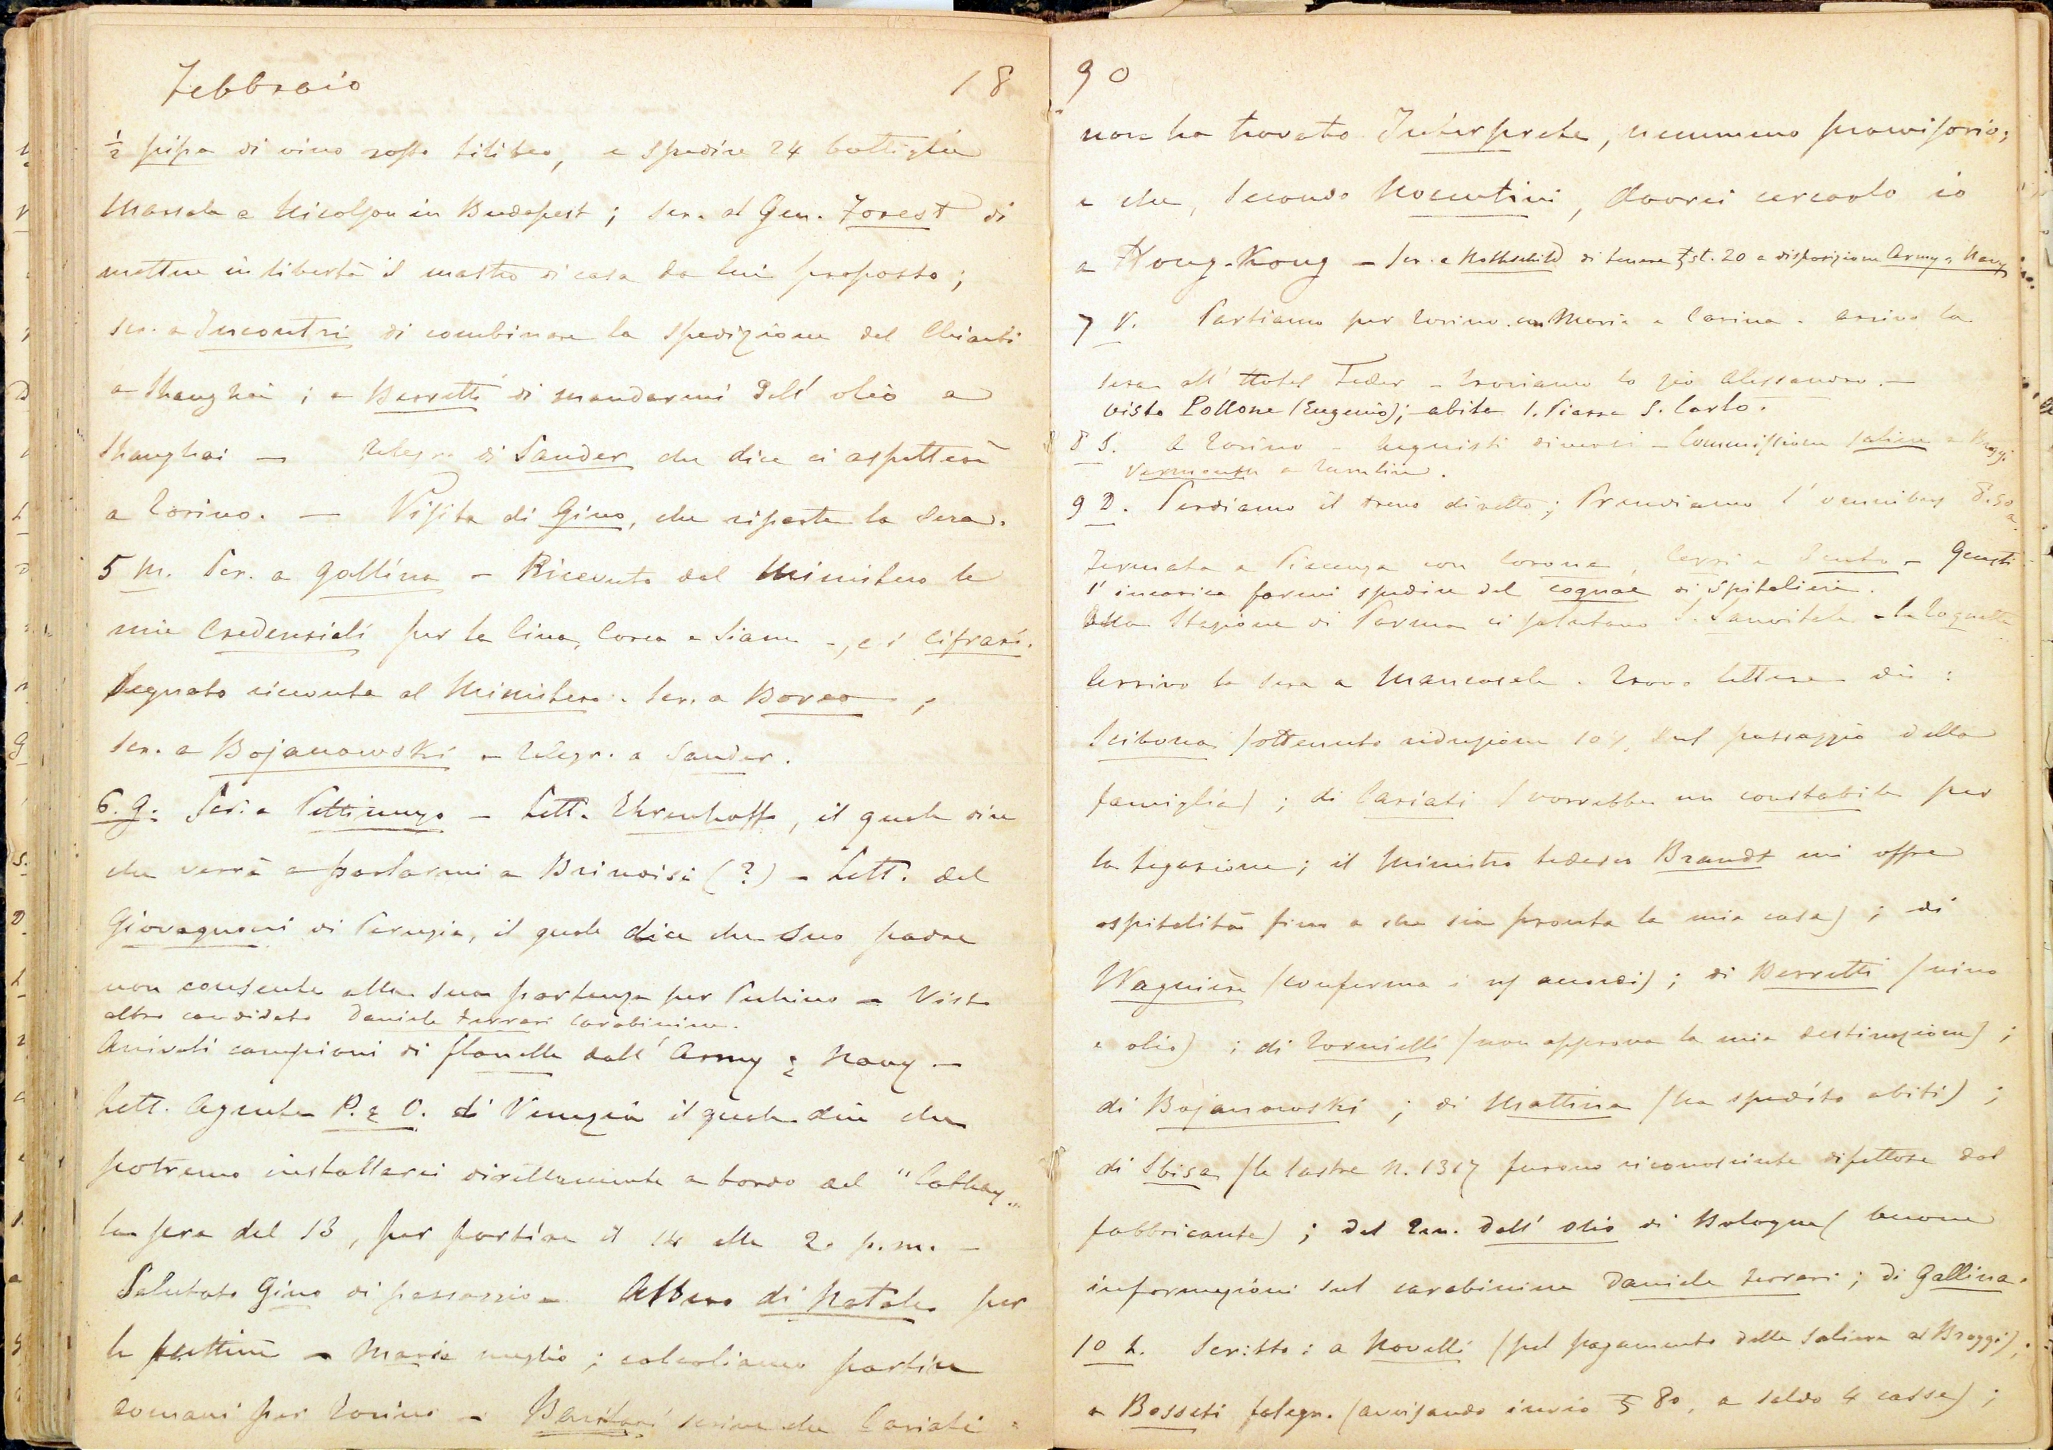 Febbraio 18
½ pipa di vino rosso Lilibeo, e spedire 24 bottiglie
Marsala a Nicolson in Budapest; scr. al Gen. Forest di
mettere in libertà il mastro di casa da lui proposto;
scr. a Incontri di combinare la spedizione del Chianti
a Shanghai; a Berretti di mandarmi dell' olio a
Shanghai — Telegr. di Sander che dice ci aspetterà
a Torino. — Visita di Gino, che riparte la sera.
5 M. Scr. a Gallina — Ricevuto dal Ministero le
mie Credenziali per la Cina, Corea e Siam —, e i cifrari.
Segnato ricevuta al Ministero. Scr. a Borea;
Scr. a Bojanowski — Telegr. a Sander.
6. G. Scr. a Pettinengo — Lett. Ehrenhoff, il quale dice
che verrà a parlarmi a Brindisi (?) — Lett. del
Giovagnoni di Perugia, il quale dice che suo padre
non consente alla sua partenza per Pechino — Visto
altro candidato Daniele Ferrari carabiniere.
Arrivati campioni di flanella dall' Army & Navy —
Lett. Agente P. & O. di Venezia il quale dice che
potremo installarci direttamente a bordo del "Cathay"
la sera del 13, per partire il 14 alle 2. p.m. —
Salutato Gino di passaggio — Albero di Natale per
le — Maria meglio; calcoliamo partire
domani per Torino — scrive che Cariati
90
non ha trovato Interprete, nemmeno provvisorio;
e che, secondo Nocentini, dovrei cercarlo io
a Hong-Kong — Scr. a Rothschild di tenere £st. 20 a disposizione Army & Navy
7 V. Partiamo per Torino con Maria e Carina. Arrivo la
sera all' Hotel Feder — Troviamo lo zio Alessandro. —
visto Pollone (Eugenio); abita 1. Piazza S. Carlo.
8 S. A Torino — Acquisti diversi — Commissione saliere a Broggi
Vermouth a
9 D. Perdiamo il treno diretto; Prendiamo l' omnibus 8.50 a.
Fermata a Piacenza con Corona, Cerri e — Giusti
l' incarico farmi spedire del cognac di Spitalieri.
Alla Stazione di Parma ci salutano S. Sanvitale — La
Arrivo la sera a Mancasale. Trovo lettere di:
Scibona (ottenuto riduzione 10% sul passaggio della
famiglia); di Cariati (vorrebbe un constabile per
la legazione; il Ministro tedesco Brandt mi offre
ospitalità fino a che sia pronta la mia casa); di
Wagnière (conferma i ns/ accordi); di Berretti (vino
e olio); di Tornielli (non approva la mia destinazione);
di Bojanowski; di Mattina (ha spedito abiti);
di Sbisa (le lastre N. 1317 furono riconosciute difettose dal
fabbricante); del Ten. dall' Olio di Bologna (buone
informazioni sul carabiniere Daniele Ferrari; di Gallina.
10 L. Scritto: a Novelli (pel pagamento delle saliere al Broggi);
a Bosseti falegn. (avvisando invio £ 80, a saldo 4 casse);